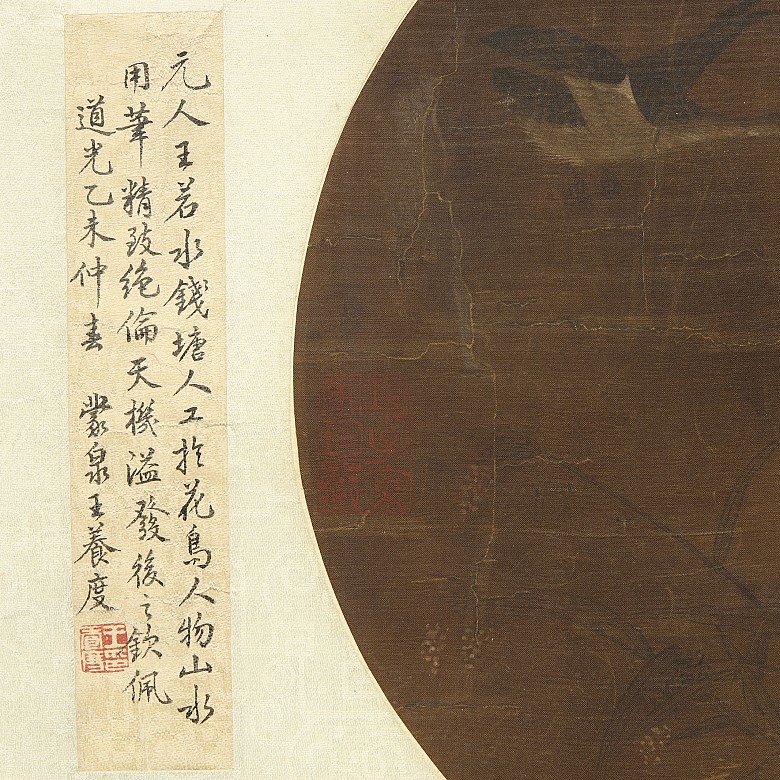 元人王若水錢塘人工於花鳥人物山水
用筆精致絕倫天機溢發後之欽佩
道光乙未仲春 蒙泉王養度